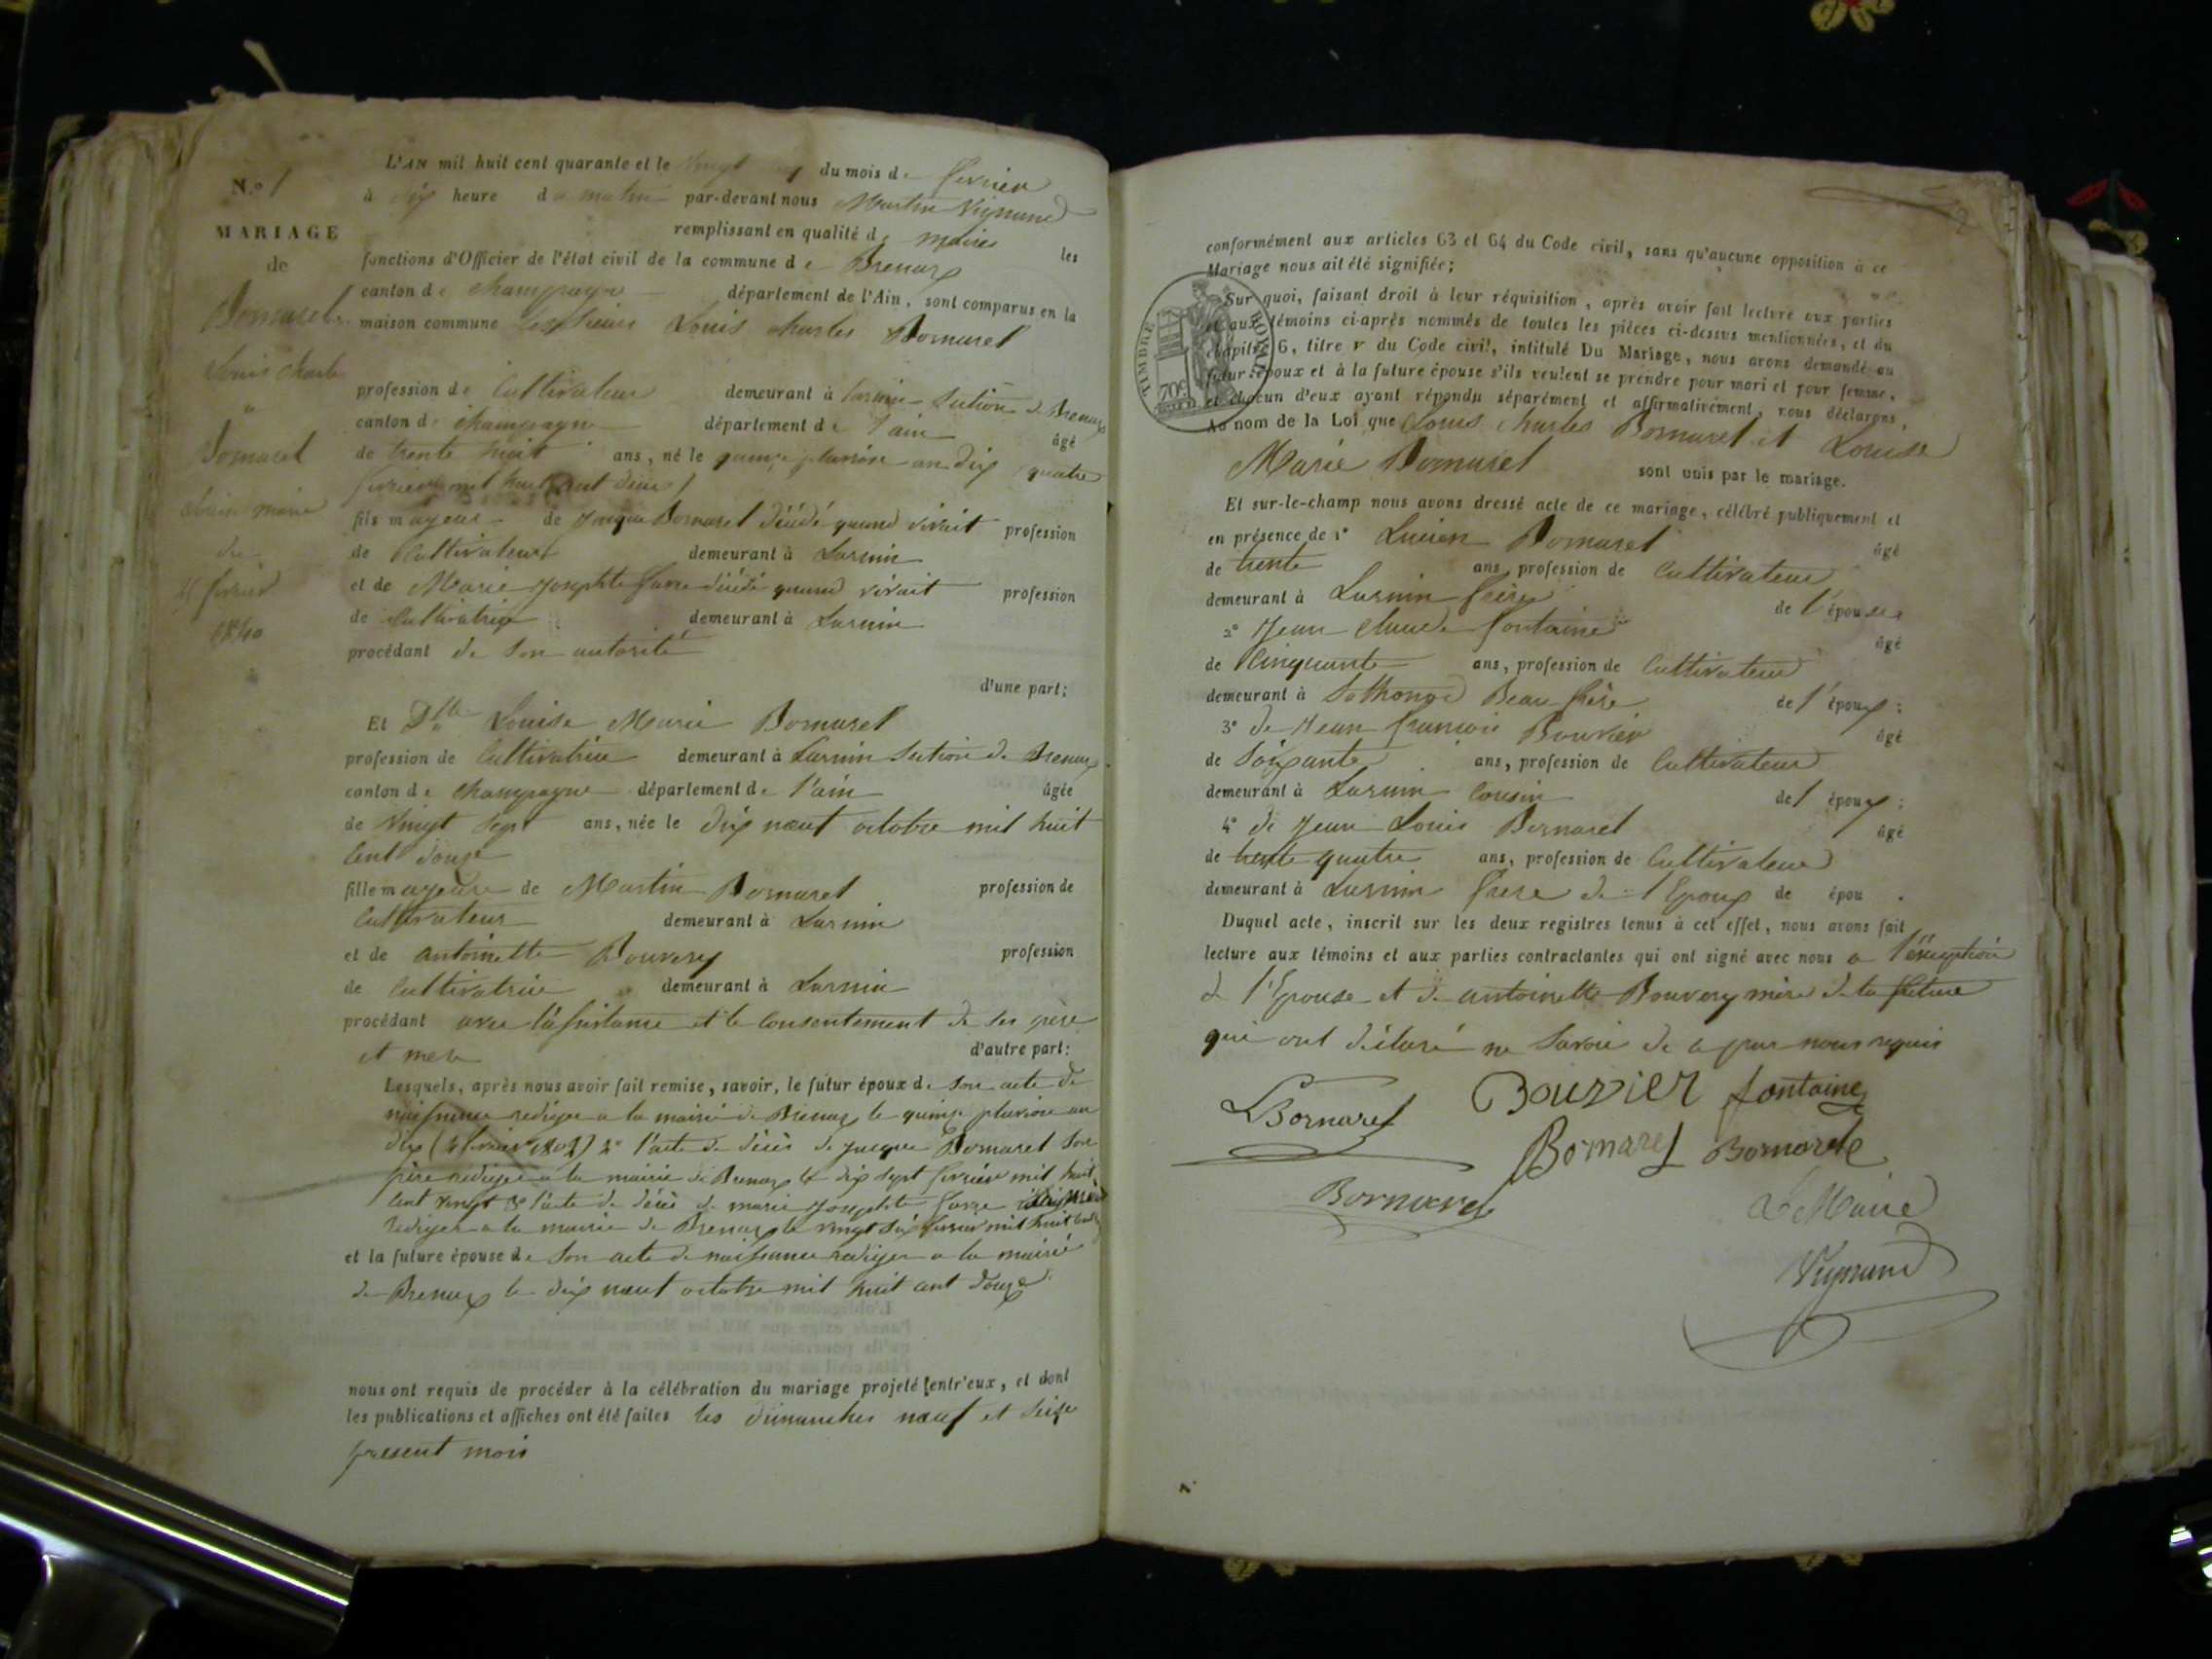 N.º 1
MARIAGE
de
Bornarel
Louis Charle
Bornarel
Louise marie
du
février
1840
L'AN mil huit cent quarante et le Vingt du mois de février
à dix heure du matin par-devant nous Martin Vignand
remplissant en qualité de maire les
fonctions d'Officier de l'état civil de la commune de Brenaz
canton de Champagne département de l'Ain, sont comparus en la
maison commune les sieurs Louis Charles Bornarel
profession de Cultivateur demeurant à Lasnin Section de Brenaz
canton de Champagne département de l'ain âgé
de trente huit ans, né le quinze pluviose an dix quatre
février mil huit cent deux)
fils majeur de Jacque Bornarel décédé quand vivait profession
de Cultivateur demeurant à Larnin
et de Marie Josephte favre décédé quand vivait profession
de Cultivatrice demeurant à Larnin
procédant de Son autorité
d'une part;
Et Dlle Louise Marie Bornarel
profession de Cultivatrice demeurant à Larnin Section de Brenaz
canton de Champagne département de l'ain âgée
de Vingt Sept ans, née le dix neuf octobre mil huit
Cent douze
fille majeure de Martin Bornarel profession de
Cultivateur demeurant à Larnin
et de antoinette Bouvery profession
de Cultivatrice demeurant à Larnin
procédant avec l'assistance et le Consentement de Ses père
et mere d'autre part:
Lesquels, après nous avoir fait remise, savoir, le futur époux de Son acte de
naissance rediger a la mairie de Brenaz le quinze pluviose an
dix (4 février 1802) 2º l'acte de décès de Jacque Bornarel Son
père rediger a la mairie de Brenaz le dix Sept février mil huit
Cent Vingt 3º l'acte de décès de marie Josephte favre
rediger a la mairie de Brenaz le vingt Six février mil huit
et la future épouse de Son acte de naissance rediger a la mairie
de Brenaz le dix neuf octobre mil huit cent douze
nous ont requis de procéder à la célébration du mariage projeté entr'eux, et dont
les publications et affiches ont été faites les dimanches neuf et Seize
présent mois
2
conformément aux articles 63 et 64 du Code civil, sans qu'aucune opposition à ce
Mariage nous ait été signifiée;
TIMBRE ROYAL
70c
Sur quoi, faisant droit à leur réquisition, après avoir fait lecture aux parties
et aux témoins ci-après nommés de toutes les pièces ci-dessus mentionnées, et du
chapitre 6, titre v du Code civil, intitulé Du Mariage, nous avons demandé au
futur époux et à la future épouse s'ils veulent se prendre pour mari et pour femme,
et chacun d'eux ayant répondu séparément et affirmativement, nous déclarons,
Au nom de la Loi que Louis Charles Bornarel et Louise
Marie Bornarel sont unis par le mariage.
Et sur-le-champ nous avons dressé acte de ce mariage, célébré publiquement et
en présence de 1º Lucien Bornarel âgé
de trente ans, profession de Cultivateur
demeurant à Larnin frère de l'épouse
2º Jean Claude fontaine âgé
de Cinquante ans, profession de Cultivateur
demeurant à Sothonod Beau frère de l'époux;
3º de Jean françois Bouvier âgé
de Soixante ans, profession de Cultivateur
demeurant à Larnin Cousin de l'époux;
4º de Jean Louis Bornarel âgé
de trente quatre ans, profession de Cultivateur
demeurant à Larnin frere de l'Epoux de épou .
Duquel acte, inscrit sur les deux registres tenus à cet effet, nous avons fait
lecture aux témoins et aux parties contractantes qui ont signé avec nous a l'éxception
de l'Epouse et de antoinette Bouvery mère de la future
qui ont déclaré ne Savoir de ce par nous requis
LBornarel Bouvier fontaine
Bornarel Bornarel
Bornarel Le Maire
Vignand